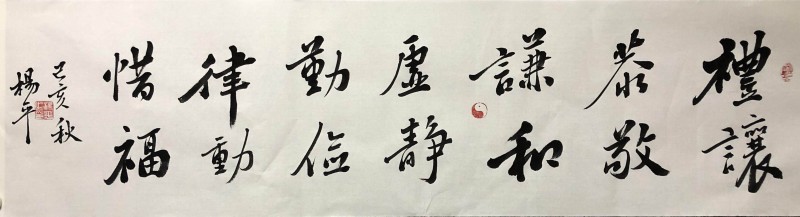 禮讓
恭敬
謙和
虛靜
勤儉
律動
惜福
己亥秋
楊平